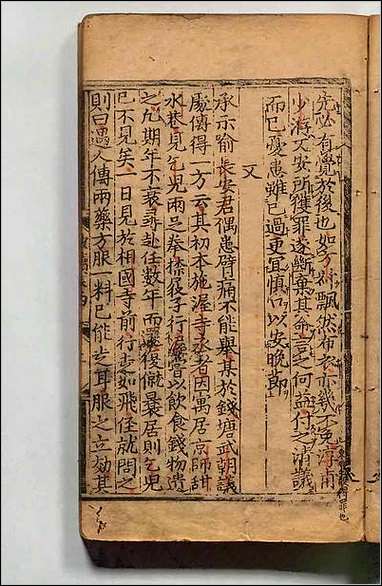 有覺於後也如飄然布衣亦幾不免淳甫
少游又安所獲罪遂斷棄其命言之何益付之清議
而已憂患雖已過更宜慎口以安晚節
又
承示諭長安君偶患臂痛不能舉某於錢塘武朝議
處傳得一方云其初本施渥寺丞者因寓居京師甜
水巷見乞兒兩足拳捺履子行渥嘗以飲食錢物遺
之凡期年不衰尋赴任數年而還復僦曩居則乞兒
已不見矣一日見於相國寺前行走如飛往就問之
則曰遇人傳兩藥方服一料已能走耳服之立効其